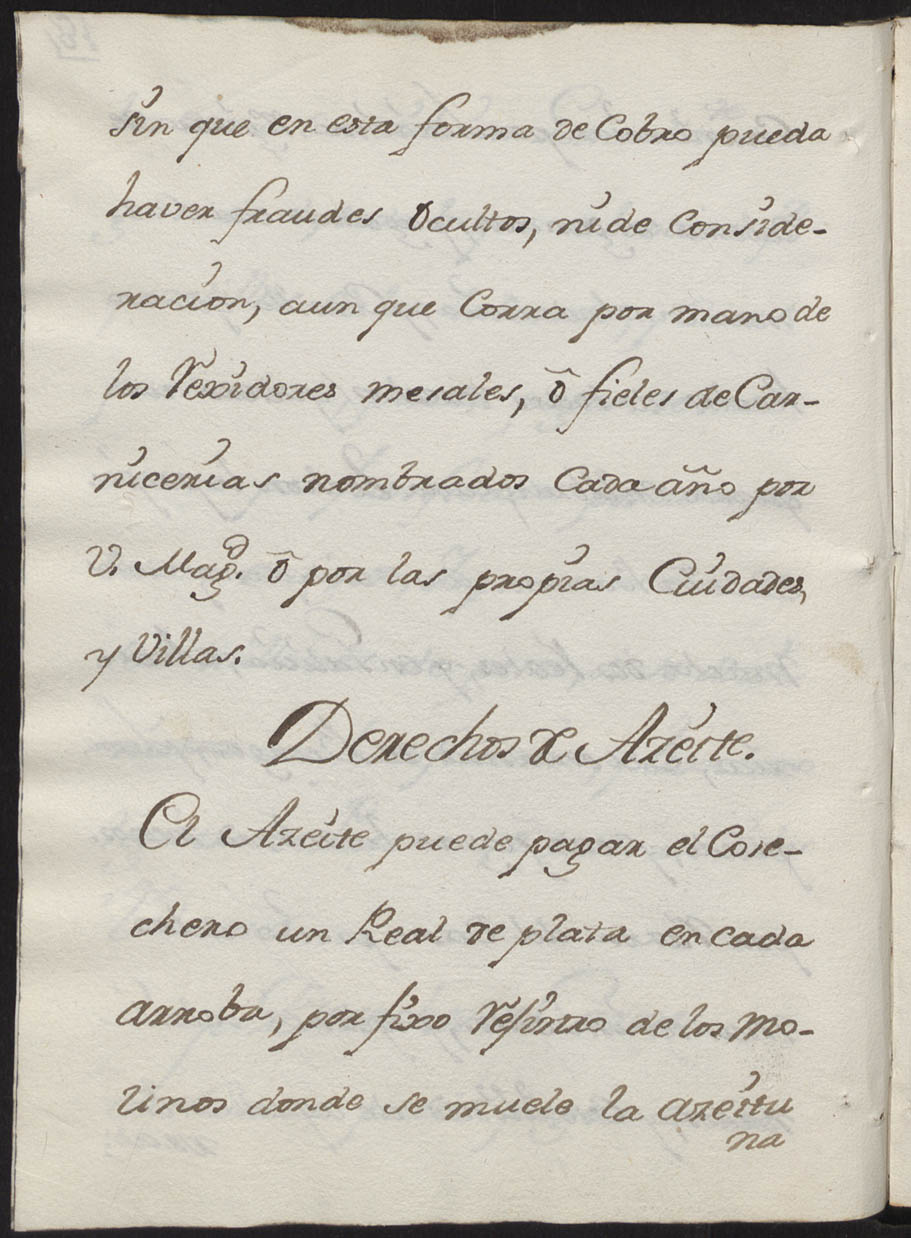 sin que en esta forma de Cobro pueda
haver fraudes ocultos, ni de Conside-
racion, aun que Corra por mano de
los Rexidores mesales, ô fieles de Car-
nicerias nombrados Cada año por
V. Magd. ô por las propias Ciudades,
y Villas.
Derechos de Azeite.
El Azeite puede pagar el Cose-
chero un Real de plata en cada
arroba, por fixo Resistro de los Mo-
linos donde se muele la azeitu
na